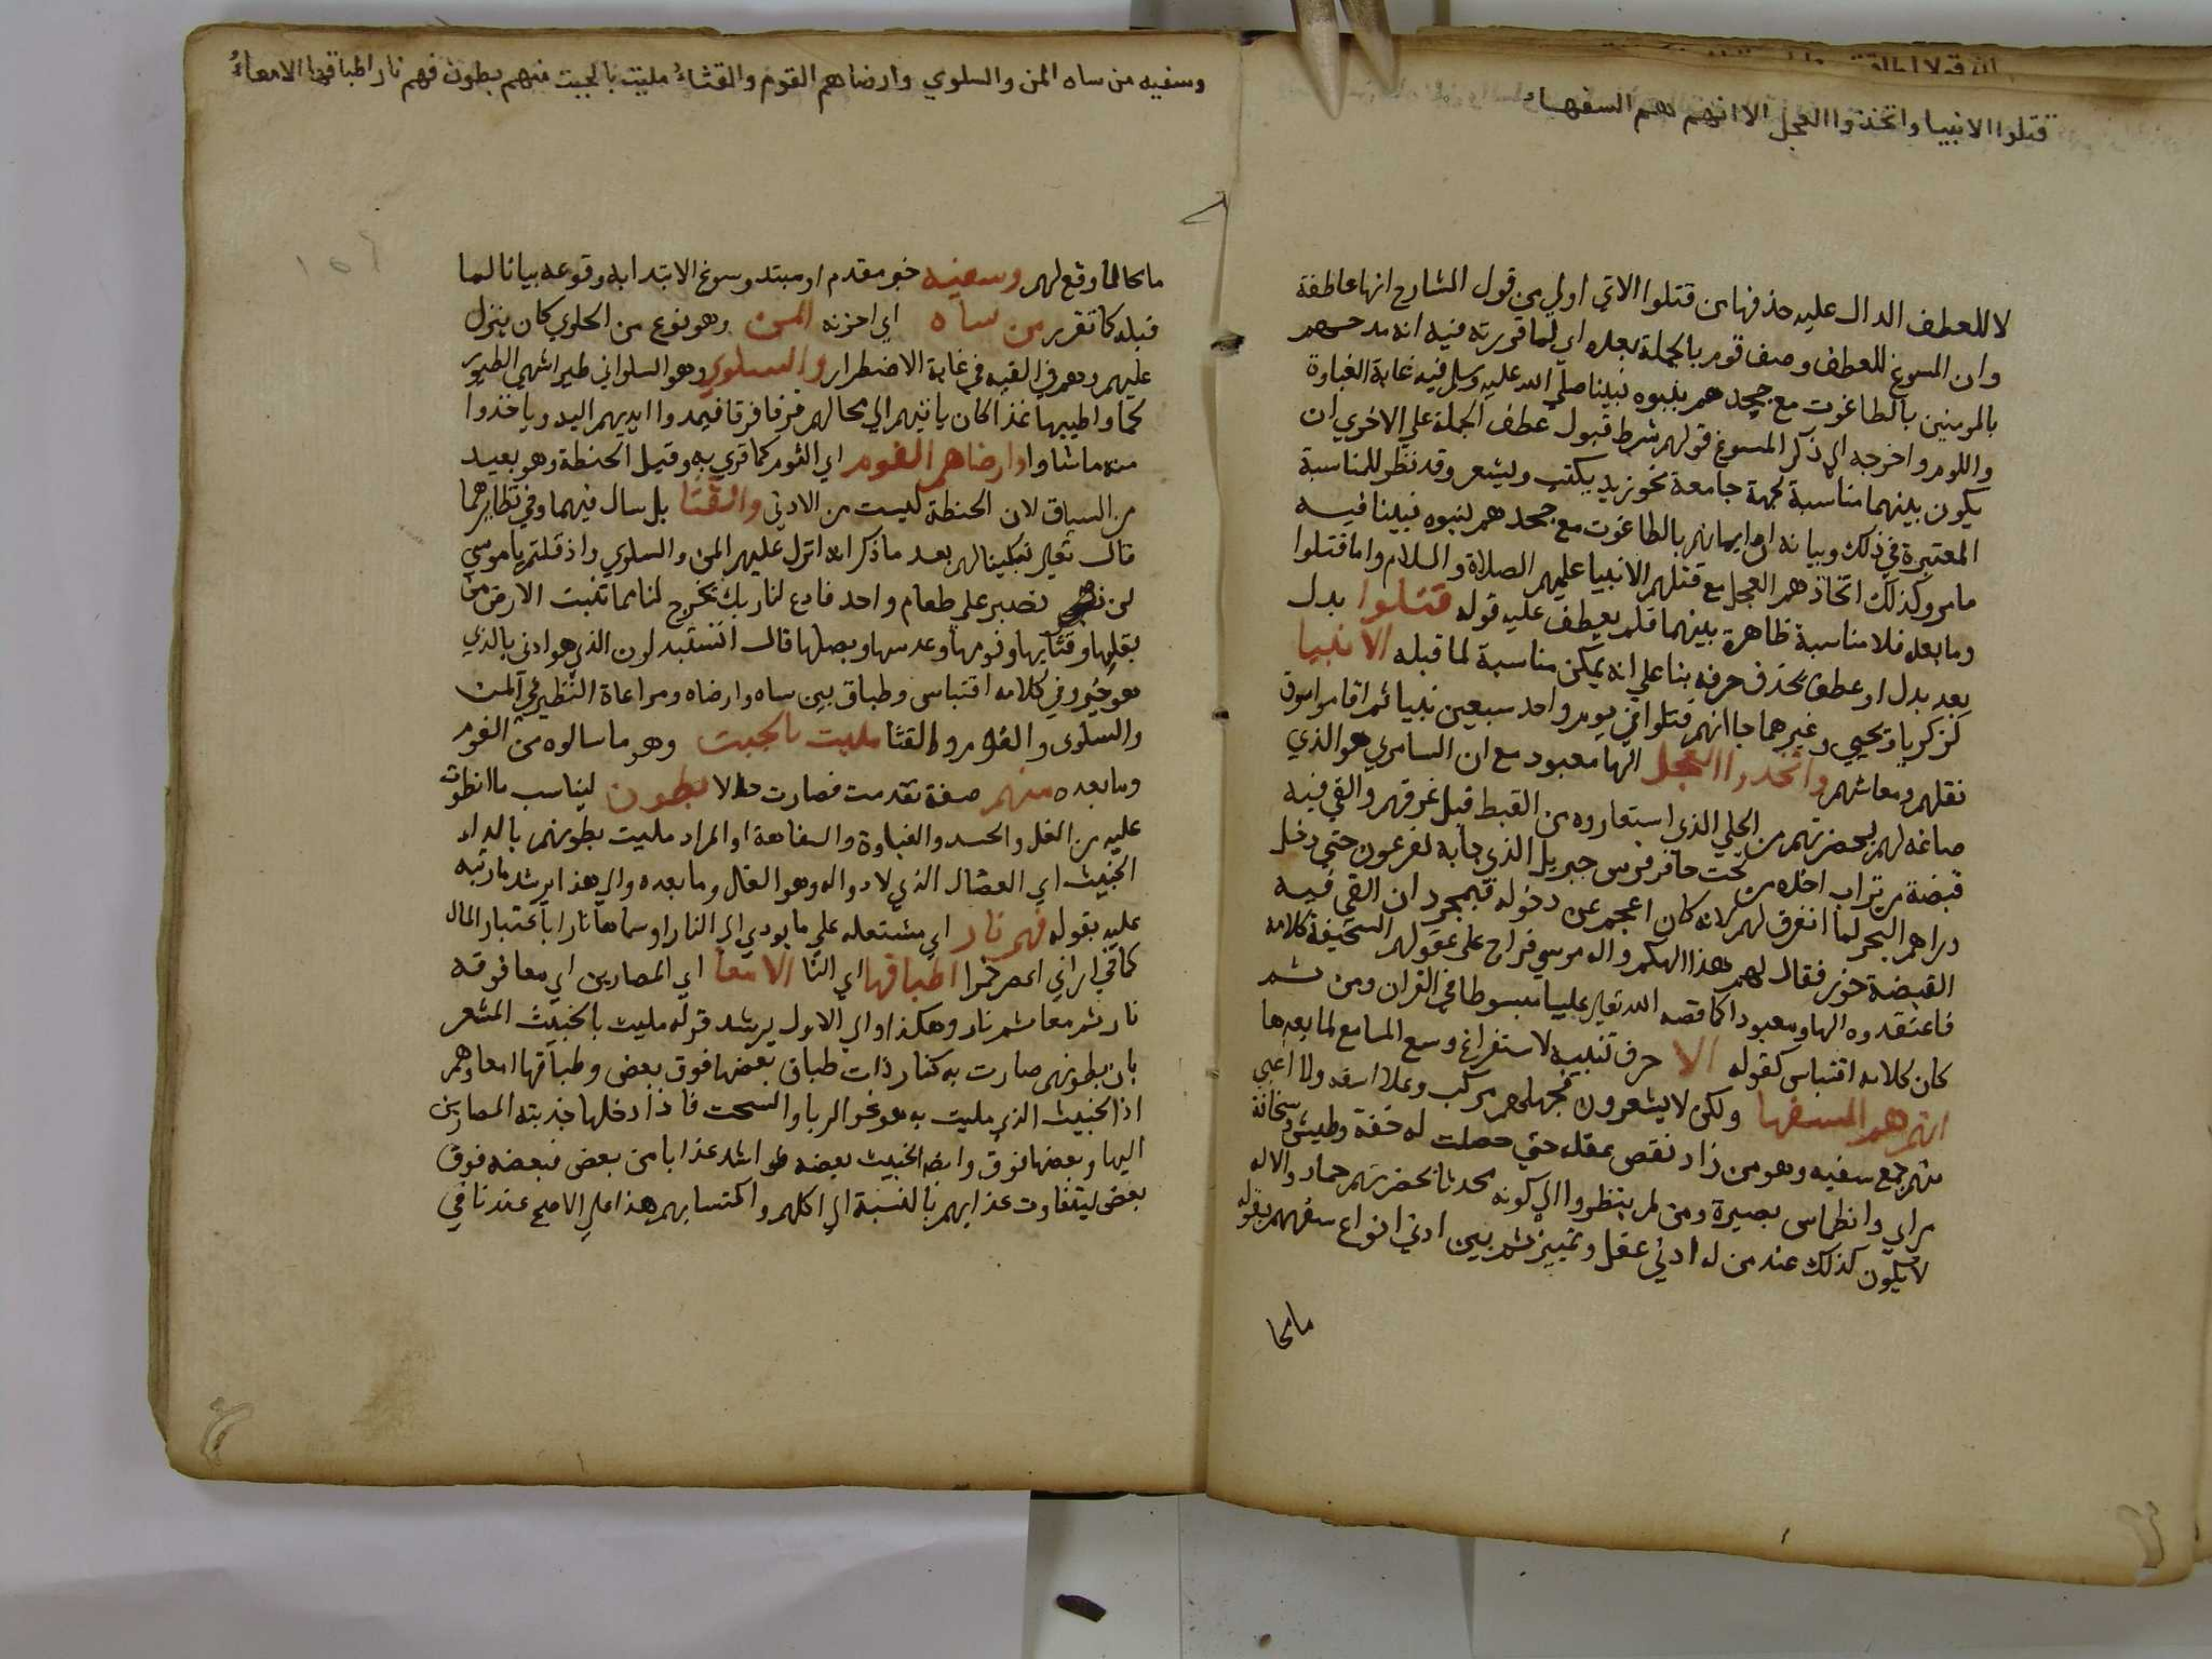 قتلوا الانبيا واتخذوا العجل الا انهم هم السفهاء
لا للعطف الدال عليه حذفها من قتلوا الاتي اولي من قول الشارح انها عاطفة
وان المسوغ للعطف وصف قوم بالجملة بعده اي لما قررته فيه انه مدحهم
بالمومنين بالطاغوت مع جحدهم بنبوه نبينا صلي الله عليه وسلم فيه غاية الغباوة
واللوم واخرجه الي ذكر المسوغ قولهم شرط قبول عطف الجملة علي الاخري ان
يكون بينهما مناسبة لجهة جامعة نحو زيد يكتب ويشعر وقد نظر للمناسبة
المعتبرة في ذلك وبيانه ان ايمانهم بالطاغوت مع جحدهم لنبوه نبينا فيه
ما مر وكذلك اتخاذهم العجل مع قتلهم الانبيا عليهم الصلاة والسلام واما قتلوا
وما بعده فلا مناسبة ظاهرة بينهما فلم يعطف عليه قوله قتلوا بدل
بعد بدل او عطف بحذف حرفه بنا علي انه يمكن مناسبة لما قبله الانبيا
كزكريا ويحيي وغيرهما جا انهم قتلوا في يوم واحد سبعين نبيا ثم اقاموا سوق
نقلهم ومعاشهم واتخذوا العجل الها معبود مع ان السامري هو الذي
صاغه لهم بحضرتهم من الحلي الذي استعاروه من القبط قبل غرقهم والقي فيه
قبضة من تراب اخذه من تحت حافر فرس جبريل الذي جا به لفرعون حتي دخل
وراهم البحر لما انفرق لهم لانه كان اعجم عن دخوله فبمجرد ان القي فيه
القبضة خور فقال لهم هذا الهكم واله موسي فراج علي عقولهم السخيفة كلامه
فاعتقدوه الها ومعبودا كما قصه الله تعالي علينا مبسوطا في القران ومن ثم
كان كلامه اقتباس كقوله الا حرف تنبيه لاستفراغ وسع المسامع لما بعدها
انهم هم السفها ولكن لا يشعرون فجهلهم مركب وعلا اسفه ولا اغبي
منهم جمع سفيه وهو من زاد نقص عقله حتي حصلت له خفة وطيش وسخافة
راي وانطماس بصيرة ومن لم ينظروا الي كونه محدثا بحضرتهم جماد والاله
لا يكون كذلك عند من له ادني عقل وتمييز ثم بين ادني انواع سفههم بقوله
ما محا
وسفيه من ساه المن والسلوي وارضاهم الفوم والقثاء مليت بالخبيث منهم بطون فهم نار اطباقها الامعاء
ما محا لما وقع لهم وسفيه خبر مقدم او مبتد وسوغ الابتدا به وقوعه بيانا لما
قبله كما تقرر من ساه اي احزنه المن وهو نوع من الحلوي كان ينزل
عليهم وهم في التيه في غاية الاضطرار والسلوي وهو السلواني طير اشهي الطيور
لحما واطيبها غذا كان ياتيهم الي محالهم فرقا فرقا فيمدوا ايديهم اليه وياخذوا
منه ما شاوا وارضاهم الفوم اي الثوم كما قري به وقيل الحنطة وهو بعيد
من السياق لان الحنطة ليست من الادني والقثا بل سال فيهما وفي نظايرهما
قال تعالي تبكيتا لهم بعد ما ذكر انه انزل عليهم المن والسلوي واذ قلتم يا موسي
لن نصبر علي طعام واحد فادع لنا ربك يخرج لنا مما تنبت الارض من
بقلها وقثايها وفومها وعدسها وبصلها قال اتستبدلون الذي هو ادني بالذي
هو خير وفي كلامه اقتباس وطباق بين ساه وارضاه ومراعاة النظير في المن
والسلوي والفوم والقثا مليت بالخبيث وهو ما سالوه من الفوم
وما بعده منهم صفة تقدمت فصارت حالا بطون ليناسب ما انطوت
عليه من الغل والحسد والغباوة والسفاهة او المراد مليت بطونهم بالداء
الخبيث اي العضال الذي لا دوا له وهو الغل وما بعده والي هذا يرشد ما رتبه
عليه بقوله فهم نار اي مشتعلة علي ما يودي الي النار او سماها نارا باعتبار المال
كما في اراني اعصر خمرا اطباقها اي النا الامعا اي المصارين اي معا فوقه
نار ثم معا ثم نار وهكذا والي الاول يرشد قوله مليت بالخبيث المشعر
بان بطونهم صارت به كنار ذات طباق بعضها فوق بعض وطباقها امعاوهم
اذ الخبيث الذي مليت به هو نحو الربا والسحت فاذا دخلها جذبته المصارين
اليها وبعضها فوق وايضا الخبيث بعضه هو اشد عذابا من بعض فبعضه فوق
بعض ليتفاوت عذابهم بالنسبة الي اكلهم واكتسابهم هذا علي الاصح عندنا في